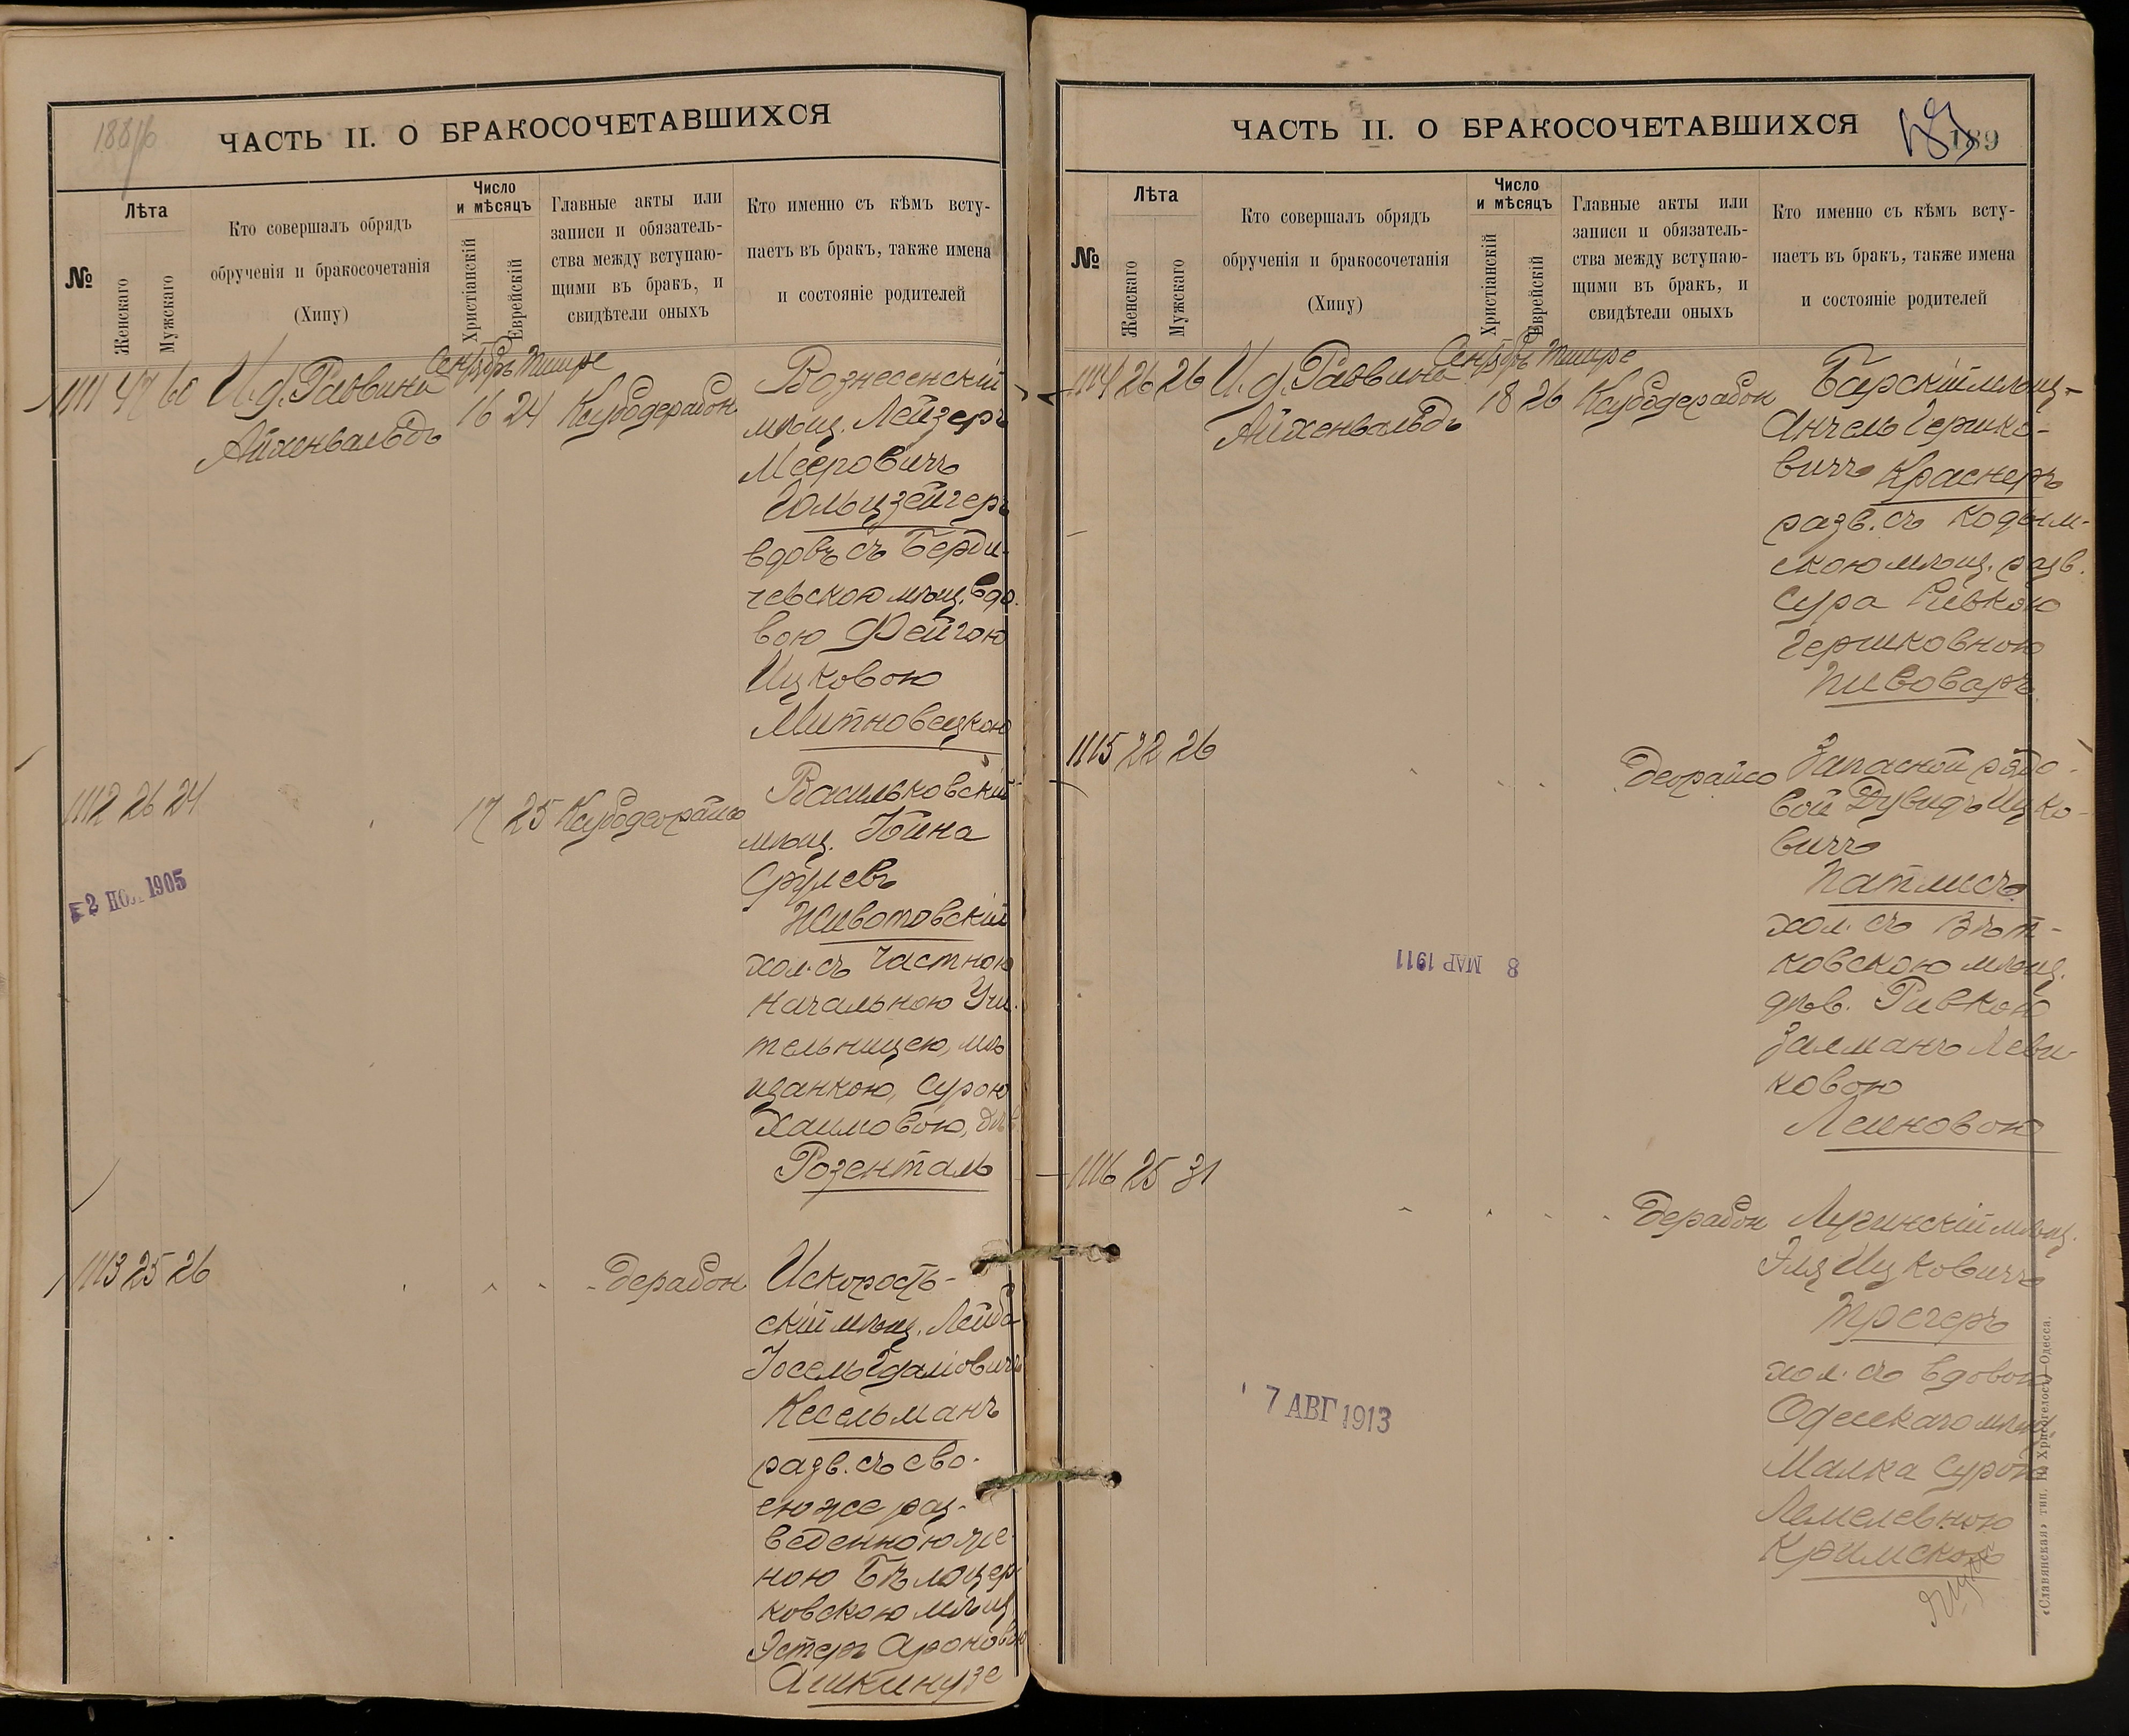 ЧАСТЬ II. О БРАКОСОЧЕТАВШИХСЯ
№
Лѣта
Женскаго
Мужскаго
Кто совершалъ обрядъ
обрученія и бракосочетанія
(Хипу)
Число
и мѣсяцъ
Христіанскій
Еврейскій
Главные акты или
записи и обязатель-
ства между вступаю-
щими въ бракъ, и
свидѣтели оныхъ
Кто именно съ кѣмъ всту-
паетъ въ бракъ, также имена
и состояніе родителей
1111 47 60 И.д. Раввина
Айхенвальдъ
Сентябрь Тишре
16 24
Вознесенскій
мѣщ. Лейзеръ
Мееровичъ
Гольцзейгеръ
вдовъ съ Берди-
чевскою мѣщ. вдо-
вою Фейгою
Ицковою
Митновецкою
1112 26 24
17 25
2 1905
Васильковскій
мѣщ.
Срулевъ
Животовскій
хол. съ частною
начальною Учи-
тельницею, мѣ
щанкою, Сурою
Хаимовою,
Розенталь
1113 25 26
Искорость-
скій мѣщ. Лейба
Іосель Гдаліовичъ
Кесельманъ
разв. съ сво-
ею же раз-
веденною же-
ною Бѣлоцер-
ковскою мѣщ.
Эстеръ Ароновою
Ашкинузе
ЧАСТЬ II. О БРАКОСОЧЕТАВШИХСЯ
189
№
Лѣта
Женскаго
Мужскаго
Кто совершалъ обрядъ
обрученія и бракосочетанія
(Хипу)
Число
и мѣсяцъ
Христіанскій
Еврейскій
Главные акты или
записи и обязатель-
ства между вступаю-
щими въ бракъ, и
свидѣтели оныхъ
Кто именно съ кѣмъ всту-
паетъ въ бракъ, также имена
и состояніе родителей
1114 26 26 И.д. Раввина
Айхенвальдъ
Сентябрь Тишре
18 26
Барскій мѣщ.
Анчель Гершко-
вичъ Краснеръ
разв. съ Кодым-
скою мѣщ. разв.
Сура Ривкою
Гершковною
Пивоваръ
1115 22 26
8 МАР 1911
Запасной рядо-
вой Дувидъ Ицко-
вичъ
Патлисъ
хол. съ Вѣт-
ковскою мѣщ.
дѣв. Ривкою
Залманъ Леви-
ковою
Леиновою
1116 25 31
7 АВГ 1913
Лугинскій мѣщ.
Эля Ицковичъ
Трегеръ
хол. съ вдовою
Одесскаго мѣщ.
Малка Сурою
Лемелевною
Кримскою
«Славянская» тип. Н. Хрисогелосъ—Одесса.